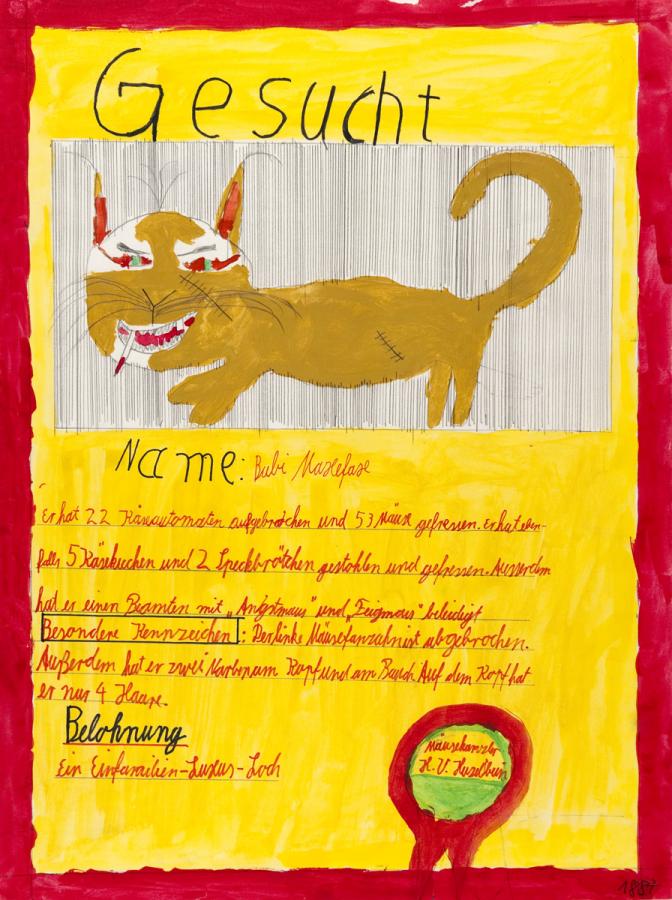 Gesucht
Name: Bubi Maxefaxe
Er hat 22 Käseautomaten aufgebrochen und 53 Mäuse gefressen. Er hat eben-
falls 5 Käsekuchen und 2 Speckbrötchen gestohlen und gefressen. Ausserdem
hat er einen Beamten mit „Angstmaus" und „Feigmaus" beleidigt
Besondere Kennzeichen: Der linke Mäusefanzahn ist abgebrochen.
Außerdem hat er zwei Narben am Kopf und am Bauch. Auf dem Kopf hat
er nur 4 Haare.
Belohnung
Ein Einfamilien-Luxus-Loch
Mäusekanzler
H. V.